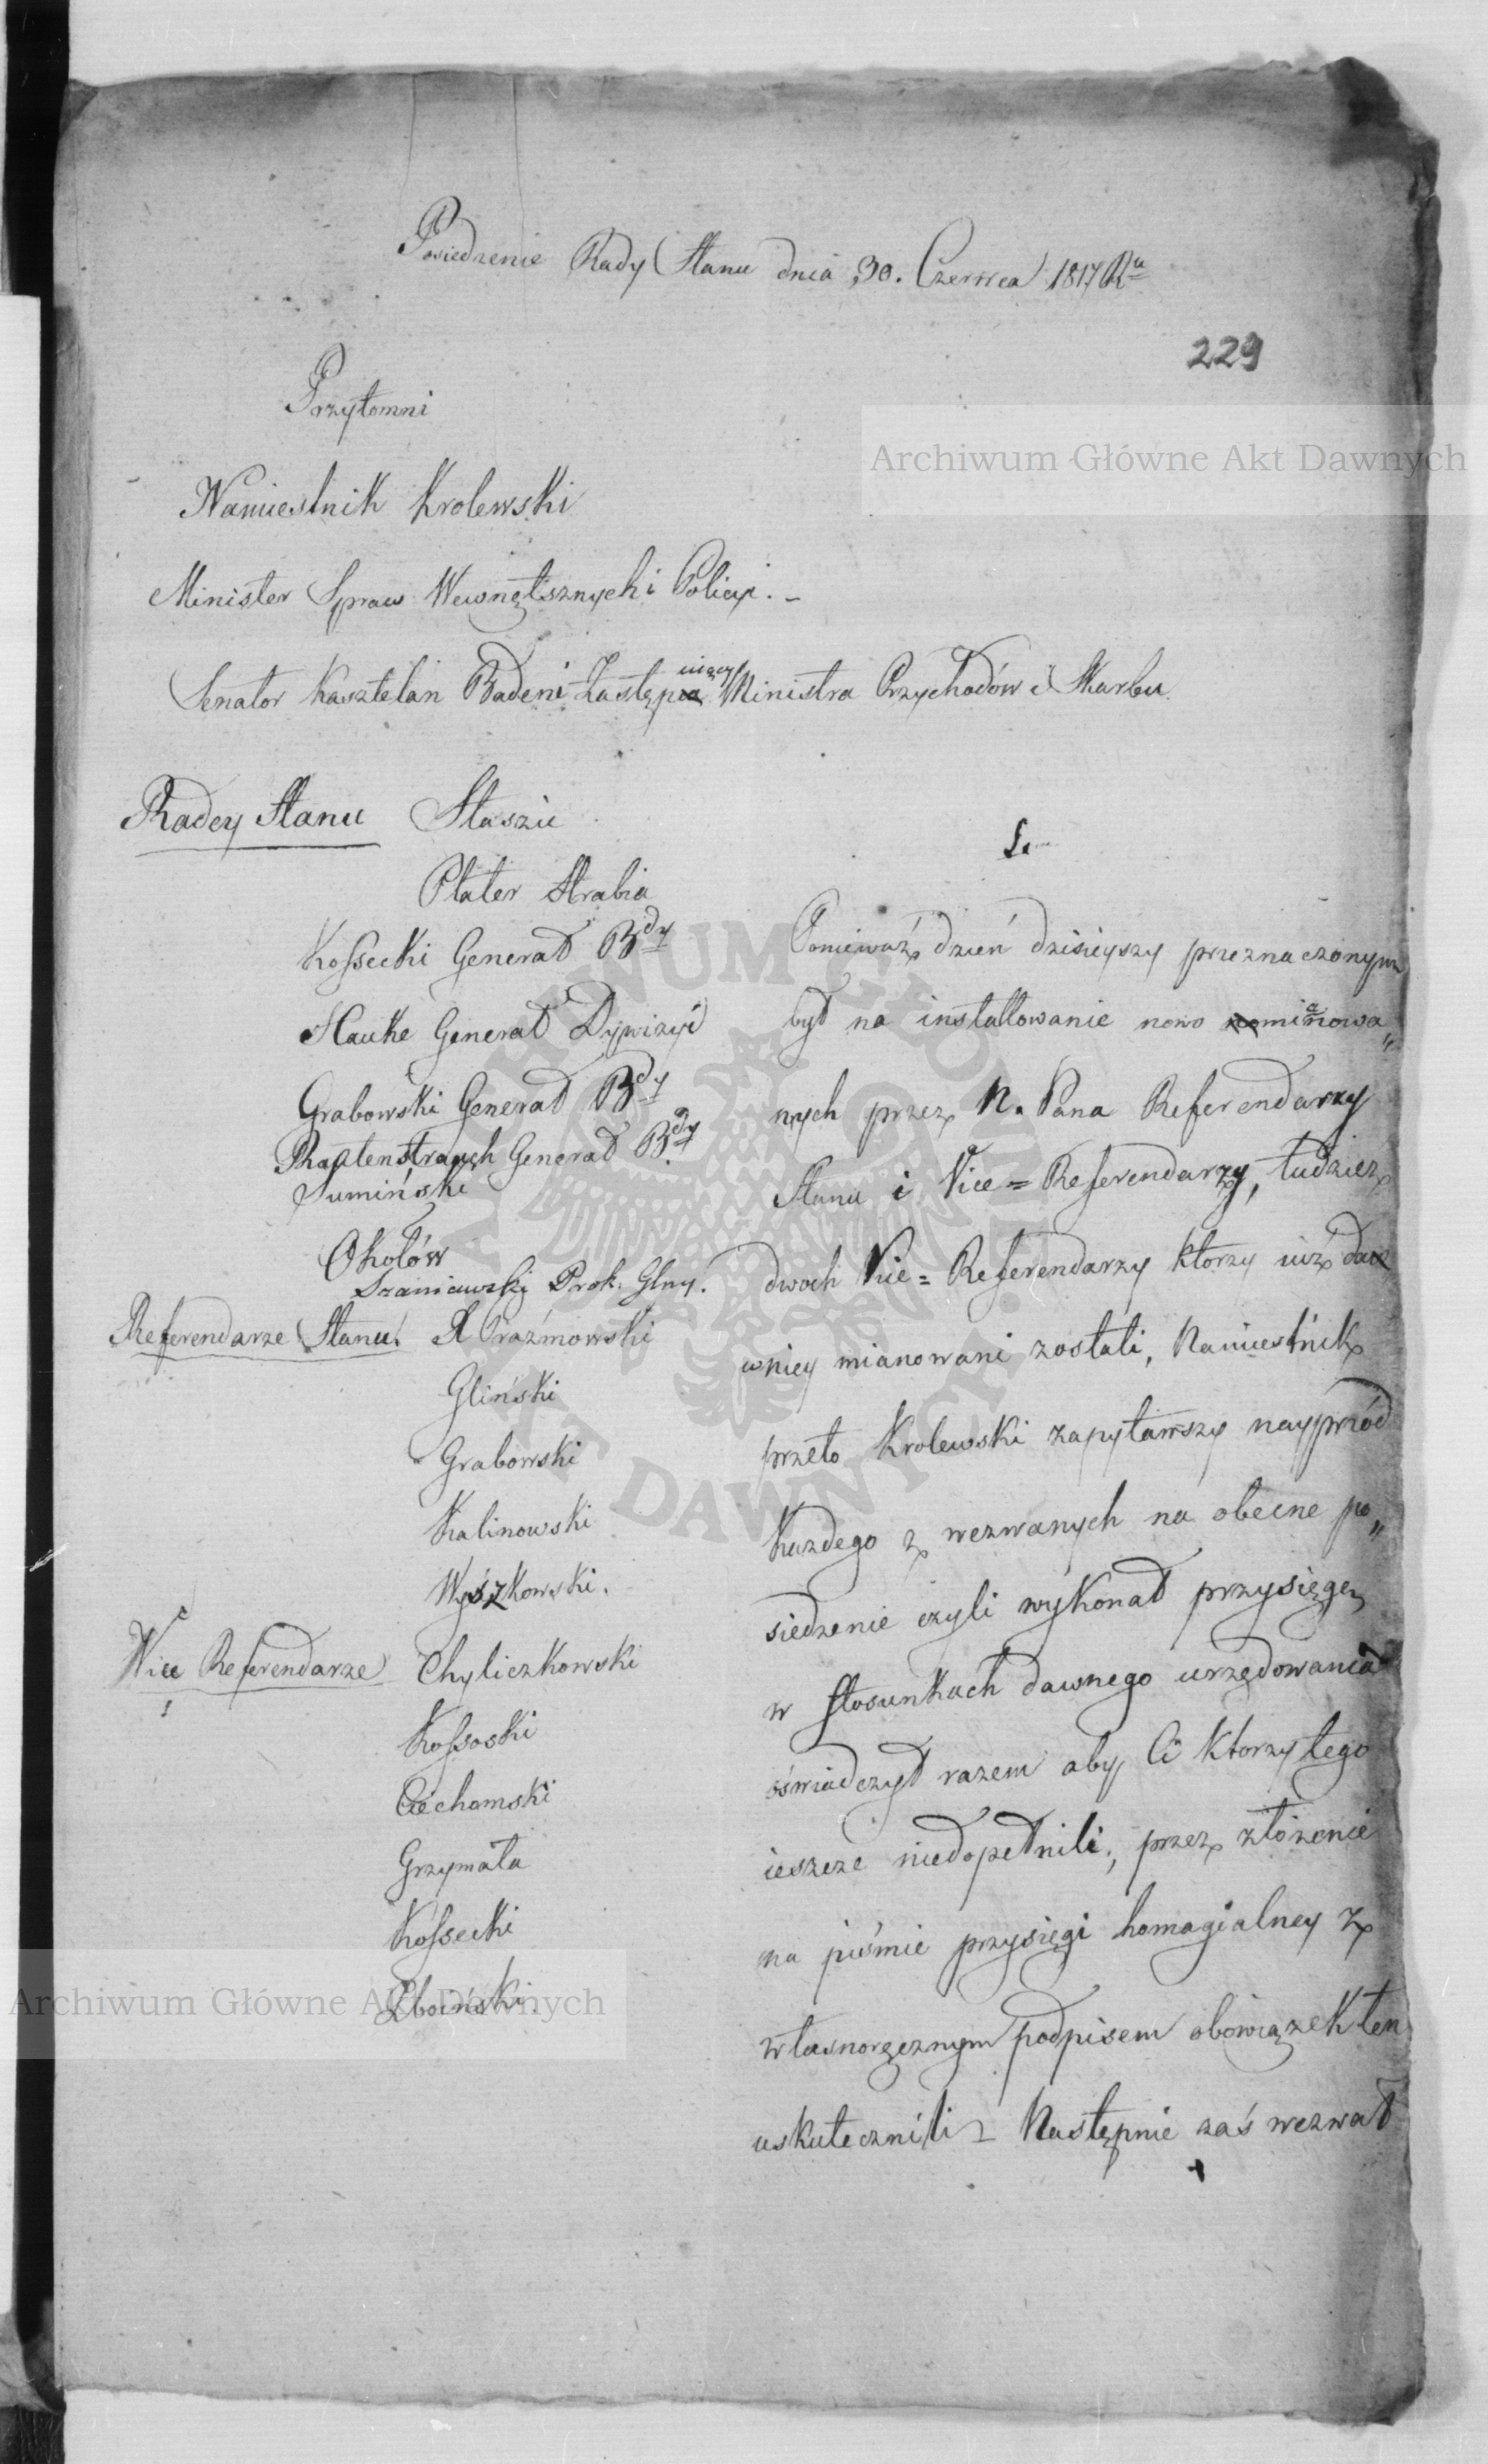 Posiedzenie Rady Stanu dnia 30. Czerwca 1817 Ru
229
Przytomni
Namiestnik Krolewski
Minister Spraw Wewnętrznych i Policyi. –
Senator Kasztelan Badeni Zastępuiący Ministra Przychodów i Skarbu
Radcy Stanu Staszic
Plater Hrabia
Kossecki Generał Bdy
Hauke Generał Dywizyi
Grabowski Generał Bdy
Rautenstrauch Generał Bdy
Sumiński
Okołów
Szaniawski Prok. Glny.
Referendarze Stanu. X Prażmowski
Gliński
Grabowski
Kalinowski
Wyszkowski.
Vice Referendarze Chyliczkowski
Kossoski
Ciechomski
Grzymała
Kossecki
Zboiński.
Ponieważ dzień dzisieyszy przeznaczonym
był na installowanie nowo mianowa„
nych przez N. Pana Referendarzy
Stanu i Vice=Referendarzy, tudzież
dwóch Vice=Referendarzy ktorzy iuż da
wniey mianowani zostali, Namiestnik
przeto Krolewski zapytawszy nayprzód
każdego z wezwanych na obecne po„
siedzenie czyli wykonał przysięgę
w stosunkach dawnego urzędowania
oświadczył razem aby Ci ktorzy tego
ieszcze niedopełnili, przez złożenie
na piśmie przysięgi homagialney z
własnoręcznym podpisem obowiązek ten
uskutecznili – Następnie zaś wezwał
Archiwum Główne Akt Dawnych
Archiwum Główne Akt Dawnych
ARCHIWUM GŁÓWNE AKT DAWNYCH